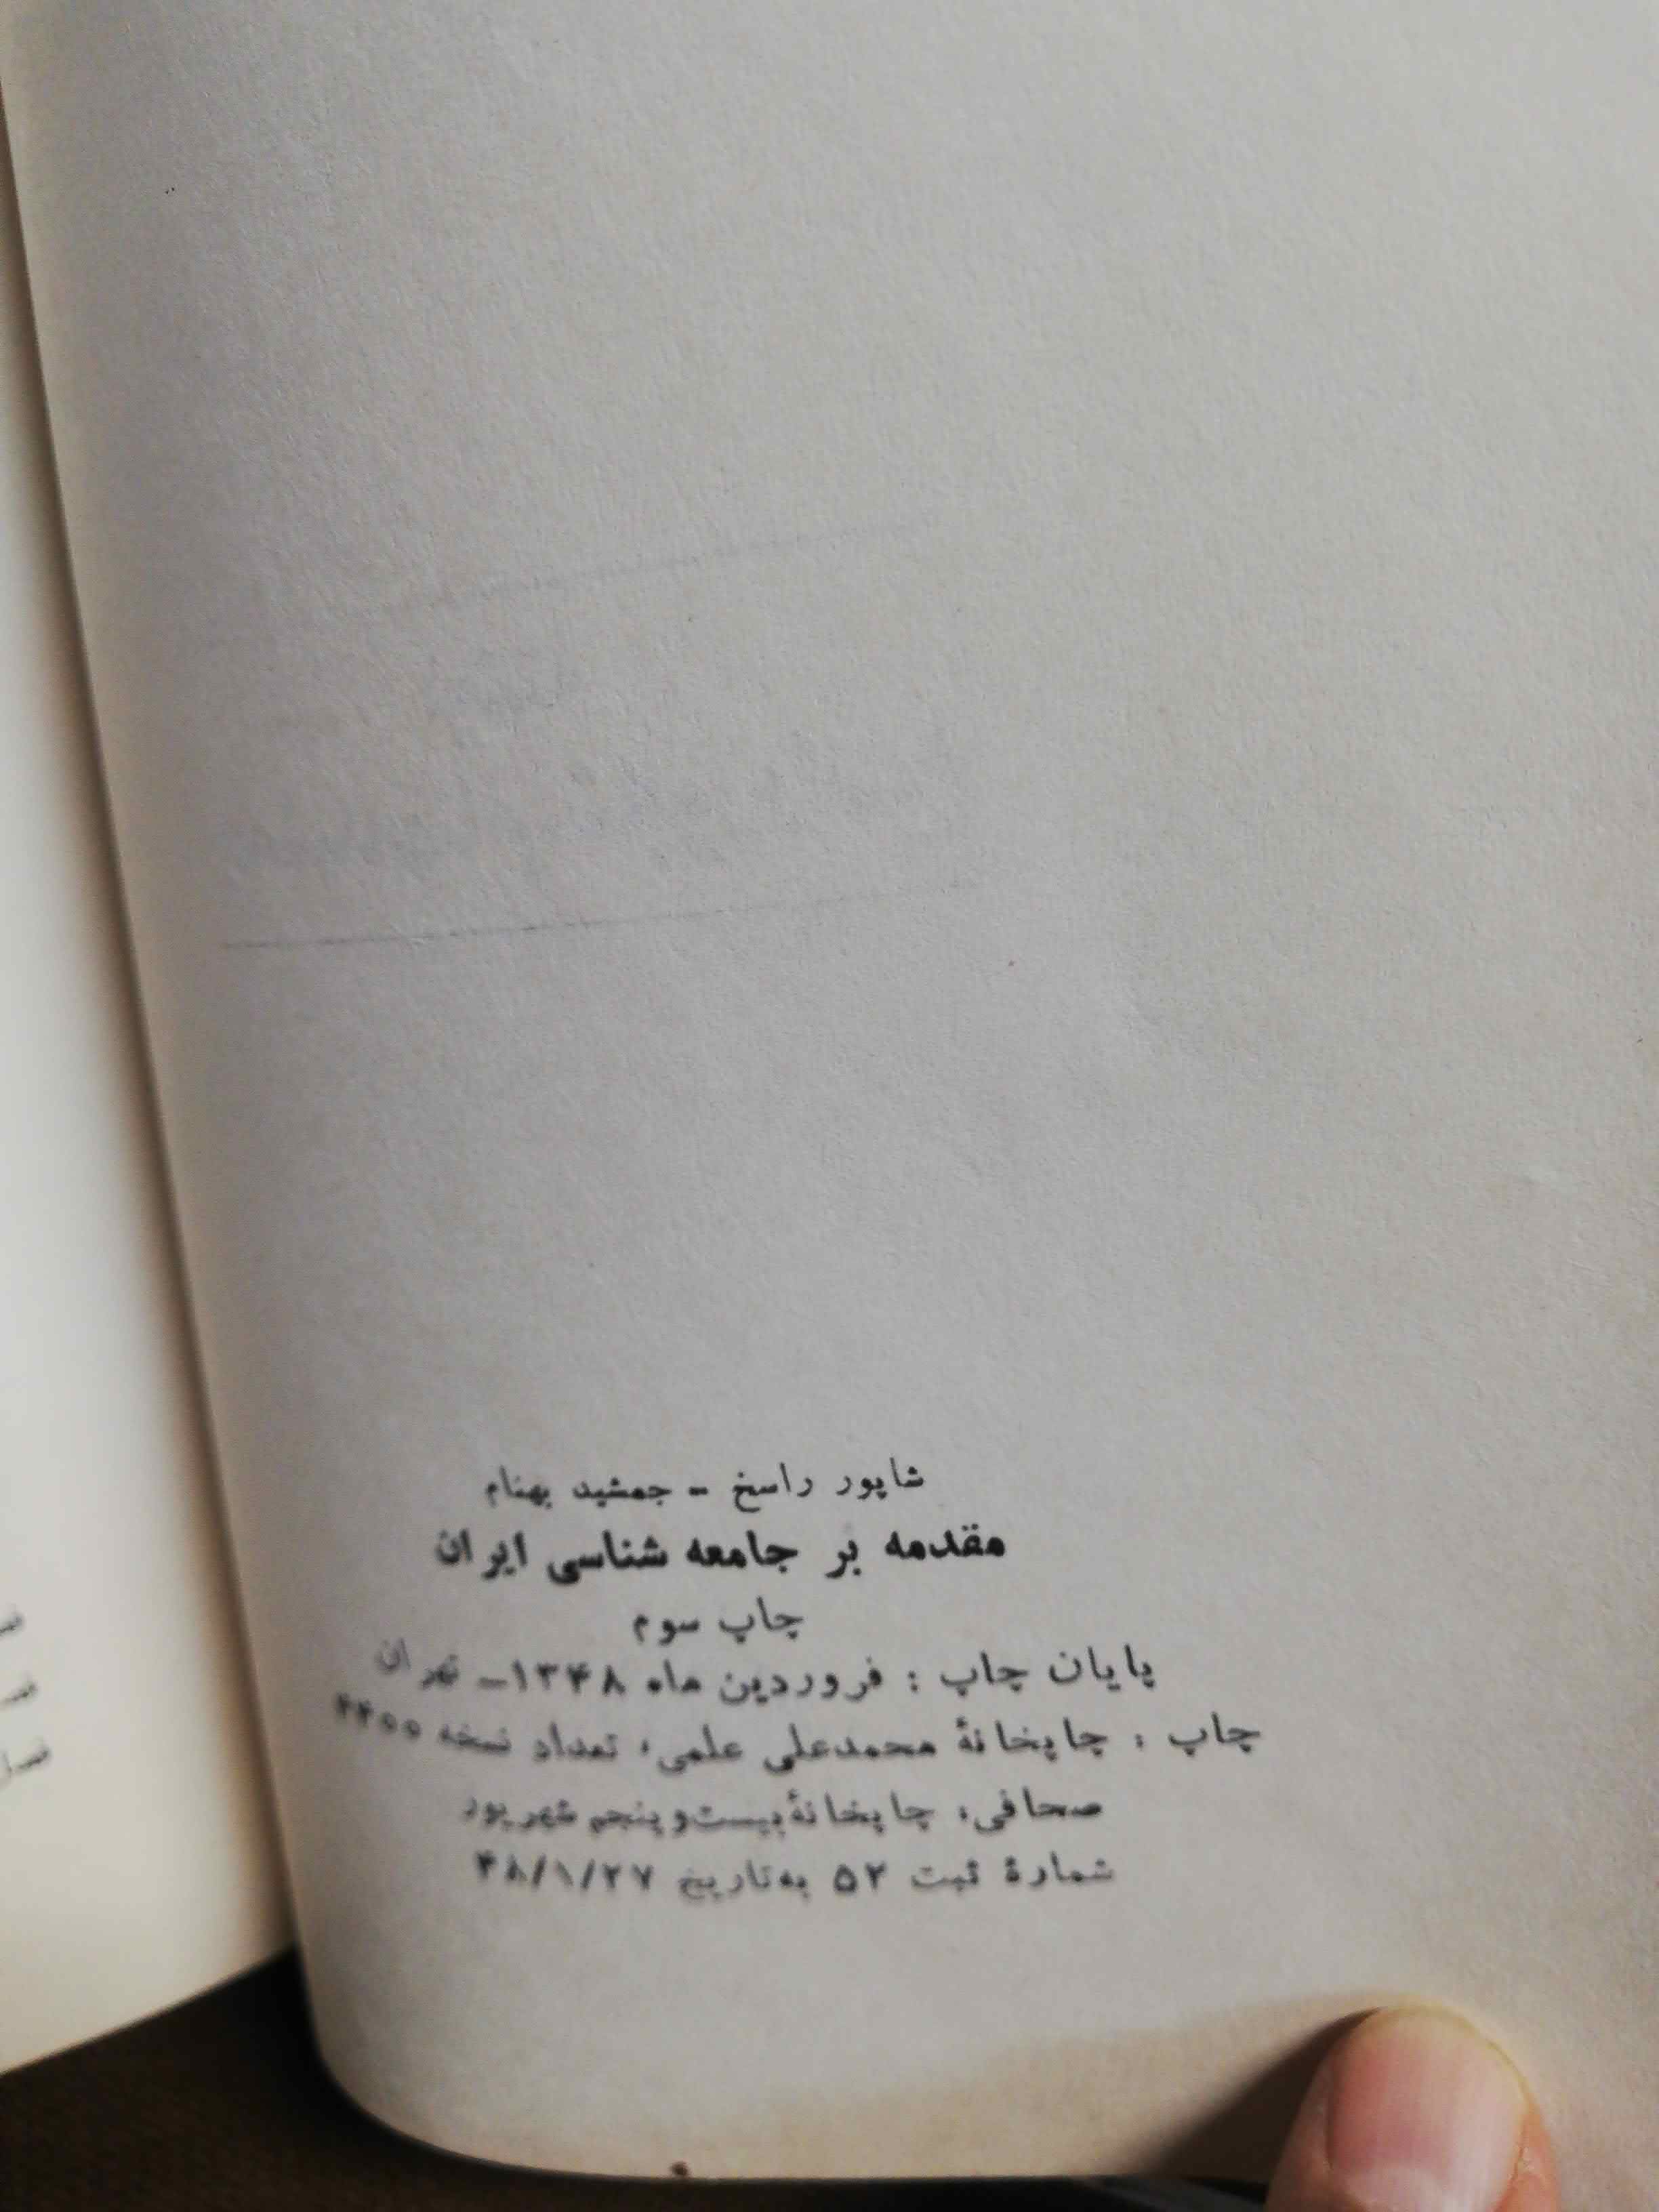 شاپور راسخ - جمشید بهنام
مقدمه بر جامعه شناسی ایران
چاپ سوم
پایان چاپ : فروردین ماه ۱۳۴۸- تهران
چاپ : چاپخانهٔ محمدعلی علمی، تعداد نسخه
صحافی: چاپخانهٔ بیست‌و‌پنجم شهریور
شمارهٔ ثبت ۵۲ به‌تاریخ ۴۸/۱/۲۷